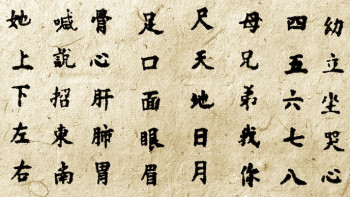 幼立坐哭心
四五六七八
母兄弟我你
尺天地日月
足口面眼眉
骨心肝肺胃
喊說招東南
她上下左右